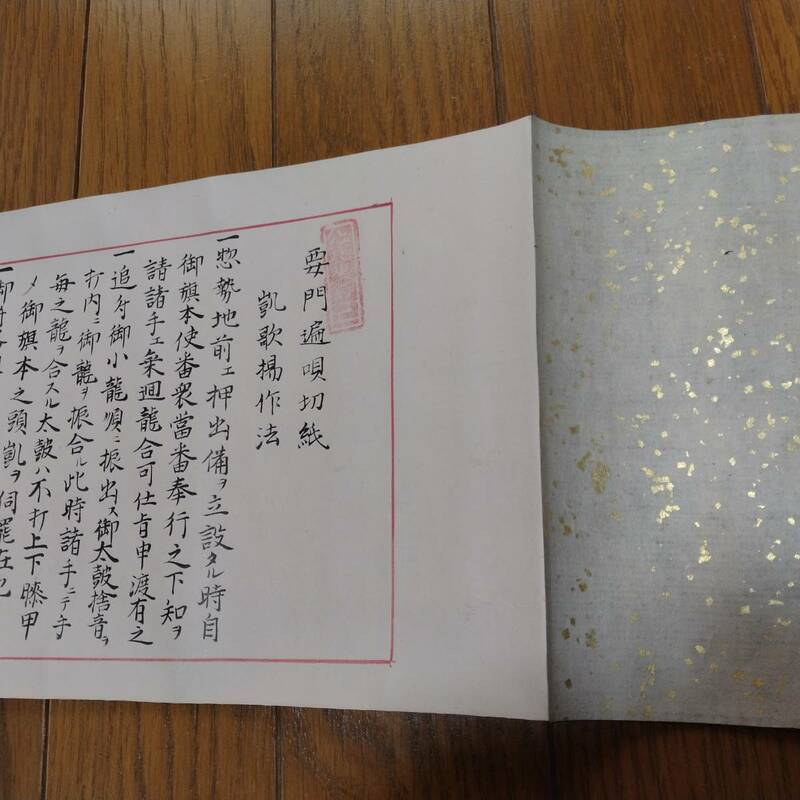 要門遍唄切紙
凱歌揚作法
一惣勢地前エ押出備ヲ立設タル時自
御旗本使番衆當番奉行之下知ヲ
請諸手エ乗廻龍合可仕旨申渡有之
一追付御小龍順ニ振出ス御太皷捨音ヲ
打内ニ御龍ヲ振合ル此時諸手ニテ手
毎之龍ヲ合スル太皷ハ不打上下勝甲
〆御旗本之頭凱ヲ伺罷在也